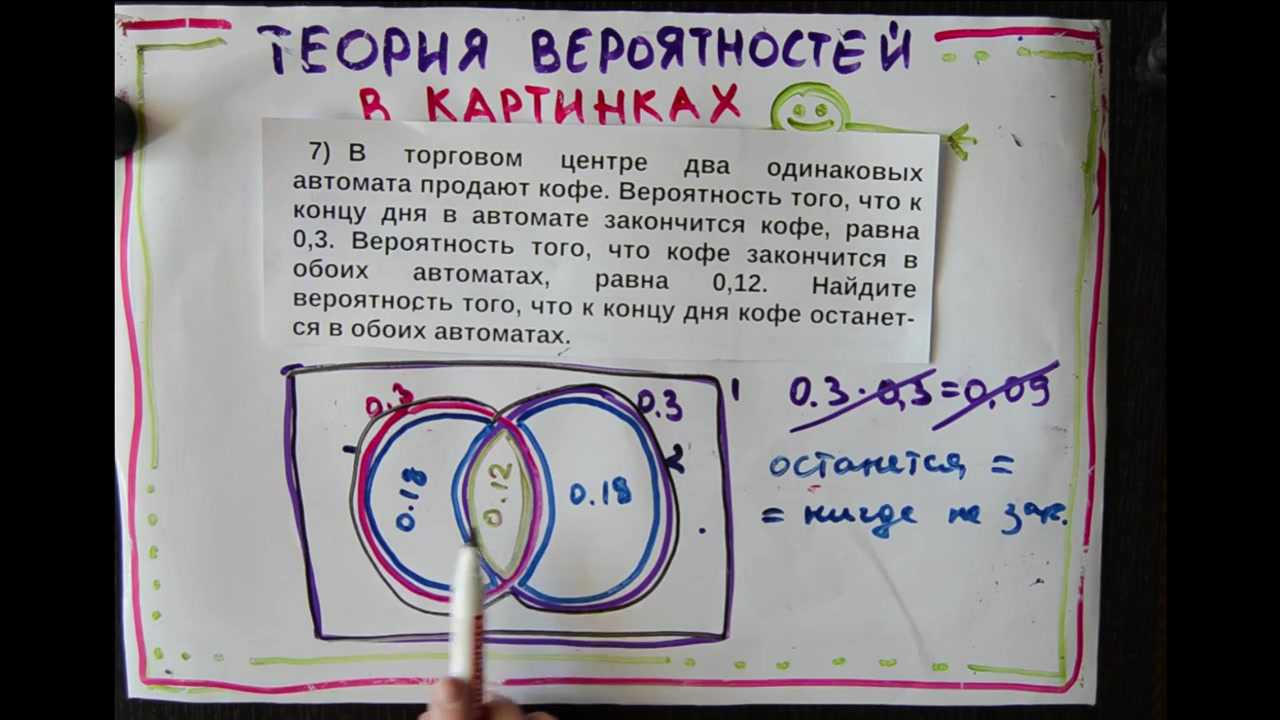 ТЕОРИЯ ВЕРОЯТНОСТЕЙ
В КАРТИНКАХ
7) В торговом центре два одинаковых
автомата продают кофе. Вероятность того, что к
концу дня в автомате закончится кофе, равна
0,3. Вероятность того, что кофе закончится в
обоих автоматах, равна 0,12. Найдите
вероятность того, что к концу дня кофе останет-
ся в обоих автоматах.
0.3
0.3
1
1
2
0.18
0.12
0.18
0.3·0,3=0,09
останется =
= нигде не зак.